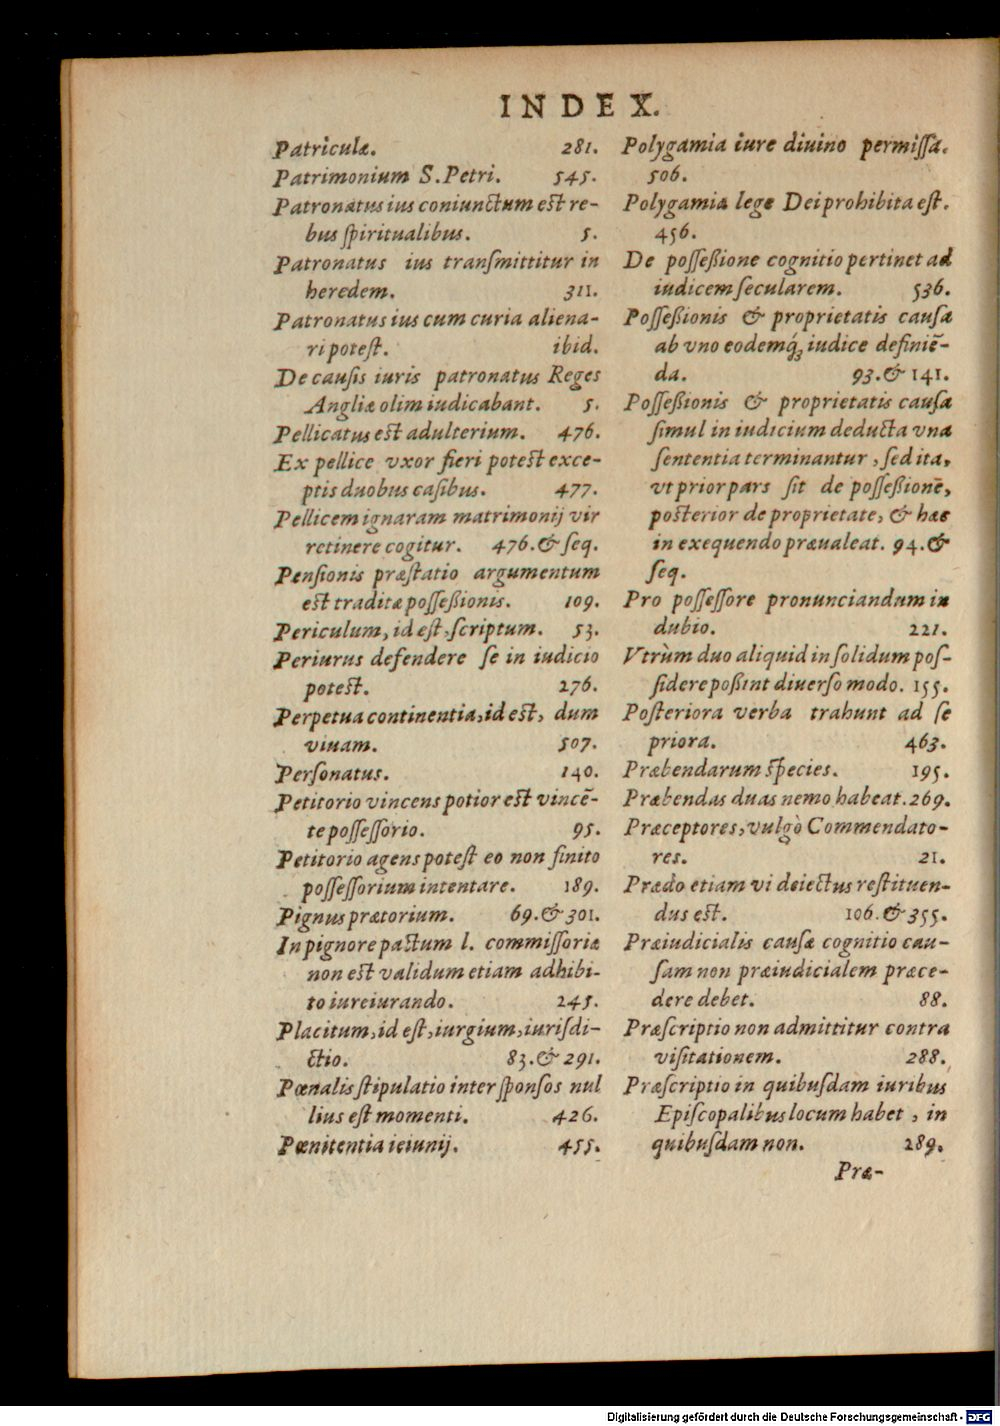 INDEX.
Patriculæ. 281.
Patrimonium S. Petri. 545.
Patronatus ius coniunctum est re-
bus ſpiritualibus. 5.
Patronatus ius tranſmittitur in
heredem. 311.
Patronatus ius cum curia aliena-
ri poteſt. ibid.
De cauſis iuris patronatus Reges
Angliæ olim iudicabant. 5.
Pellicatus est adulterium. 476.
Ex pellice vxor fieri potest exce-
ptis duobus caſibus. 477.
Pellicem ignaram matrimonij vir
retinere cogitur. 476. & ſeq.
Penſionis præſtatio argumentum
est traditæ poſſeßionis. 109.
Periculum, id eſt, ſcriptum. 53.
Periurus defendere ſe in iudicio
potest. 276.
Perpetua continentia, id est, dum
viuam. 507.
Perſonatus. 140.
Petitorio vincens potior est vincē-
te poſſeſſorio. 95.
Petitorio agens poteſt eo non finito
poſſeſſorium intentare. 189.
Pignus prætorium. 69. & 301.
In pignore pactum l. commiſſoriæ
non est validum etiam adhibi-
to iureiurando. 245.
Placitum, id eſt, iurgium, iuriſdi-
ctio. 83. & 291.
Pœnalis ſtipulatio inter ſponſos nul
lius eſt momenti. 426.
Pœnitentia ieiunij. 455.
Polygamia iure diuino permiſſa.
506.
Polygamia lege Dei prohibita eſt.
456.
De poſſeßione cognitio pertinet ad
iudicem ſecularem. 536.
Poſſeßionis & proprietatis cauſa
ab vno eodemq́ꝫ iudice definiē-
da. 93. & 141.
Poſſeßionis & proprietatis cauſa
ſimul in iudicium deducta vna
ſententia terminantur, ſed ita,
vt prior pars ſit de poſſeßionē,
posterior de proprietate, & hæc
in exequendo præualeat. 94. &
ſeq.
Pro poſſeſſore pronunciandum in
dubio. 221.
Vtrùm duo aliquid in ſolidum poſ-
ſidere poßint diuerſo modo. 155.
Poſteriora verba trahunt ad ſe
priora. 463.
Præbendarum ſpecies. 195.
Præbendas duas nemo habeat. 269.
Præceptores, vulgò Commendato-
res. 21.
Prædo etiam vi deiectus reſtituen-
dus est. 106. & 355.
Præiudicialis cauſæ cognitio cau-
ſam non præiudicialem præce-
dere debet. 88.
Præſcriptio non admittitur contra
viſitationem. 288.
Præſcriptio in quibuſdam iuribus
Epiſcopalibus locum habet, in
quibuſdam non. 289.
Præ-
Digitalisierung gefördert durch die Deutsche Forschungsgemeinschaft - DFG